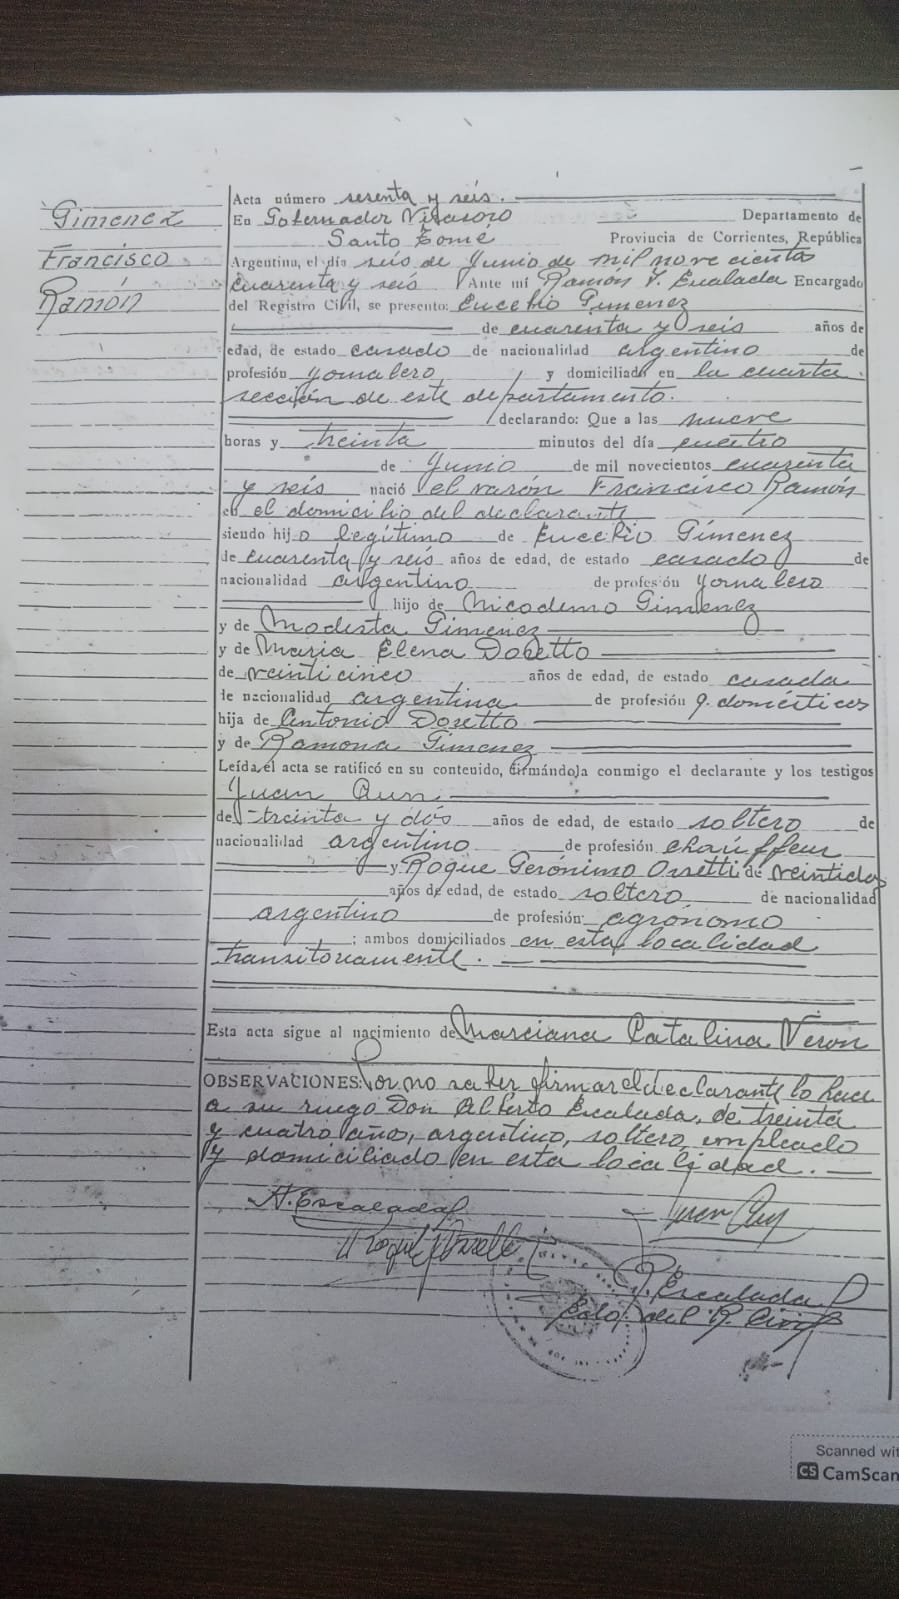 Gimenez
Francisco
Ramón
Acta número sesenta y seis.
En Gobernador Virasoro Departamento de
Santo Tomé Provincia de Corrientes, República
Argentina, el día seis de Junio de mil nove cientos
cuarenta y seis Ante mí Ramón V. Escalada Encargado
del Registro Civil, se presento: Eucebio Gimenez
de cuarenta y seis años de
edad, de estado casado de nacionalidad argentino de
profesión jornalero y domiciliado en la cuarta
sección de este departamento.
declarando: Que a las nueve
horas y treinta minutos del día cuatro
de Junio de mil novecientos cuarenta
y seis nació el varón Francisco Ramón
en el domicilio del declarante
siendo hijo legítimo de Eucebio Gimenez
de cuarenta y seis años de edad, de estado casado de
nacionalidad argentino de profesión jornalero
hijo de Nicodemo Gimenez
y de Modesta Gimenez
y de Maria Elena Doretto
de veinticinco años de edad, de estado casada
de nacionalidad argentina de profesión q. domésticos
hija de Antonio Doretto
y de Ramona Gimenez
Leída el acta se ratificó en su contenido, firmándola conmigo el declarante y los testigos
Juan
de treinta y dós años de edad, de estado soltero de
nacionalidad argentino de profesión chauffeur
y Roque Gerónimo de veintidos
años de edad, de estado soltero de nacionalidad
argentino de profesión agrónomo
; ambos domiciliados en esta localidad
transitoriamente.
Esta acta sigue al nacimiento de Marciana Catalina Veron
OBSERVACIONES: Por no saber firmar el declarante lo hace
a su ruego Don Alberto Escalada, de treinta
y cuatro años, argentino, soltero, empleado
y domiciliado en esta localidad.
A. Escalada
Escalada
del R. Civil
Scanned wit
CS CamScan